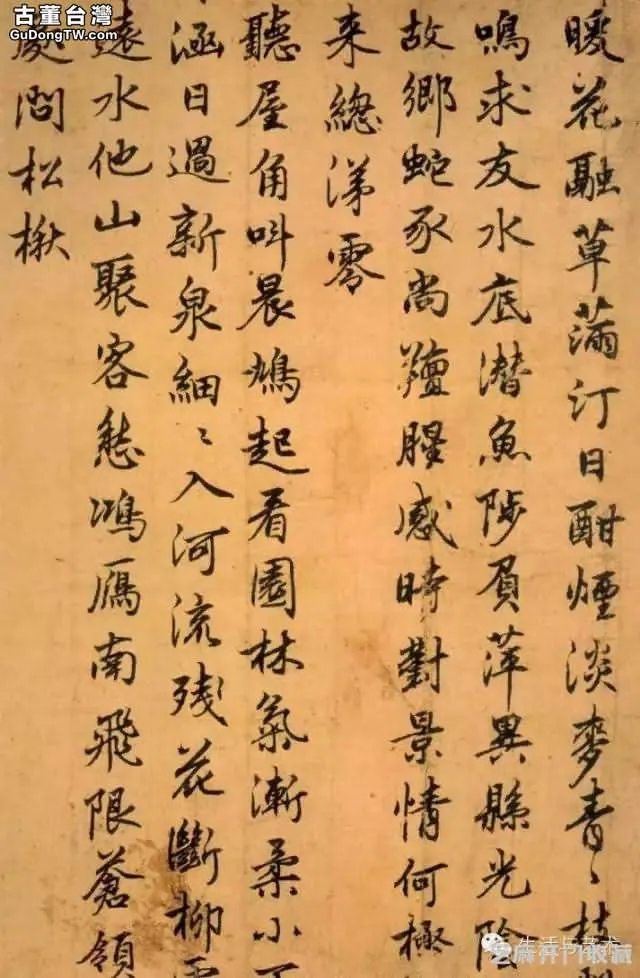 古董台灣
GuDongTW.com
暖花融草滿汀日酣煙淡麥青〻
鳴求友水底潛魚陟負萍異縣光陰
故鄉蛇豕尚羶腥感時對景情何極
来總涕零
聽屋角叫晨鳩起看園林氣漸柔小
涵日過新泉細〻入河流残花斷柳
遠水他山聚客愁鴻雁南飛限蒼領
處問松楸
生活与艺术